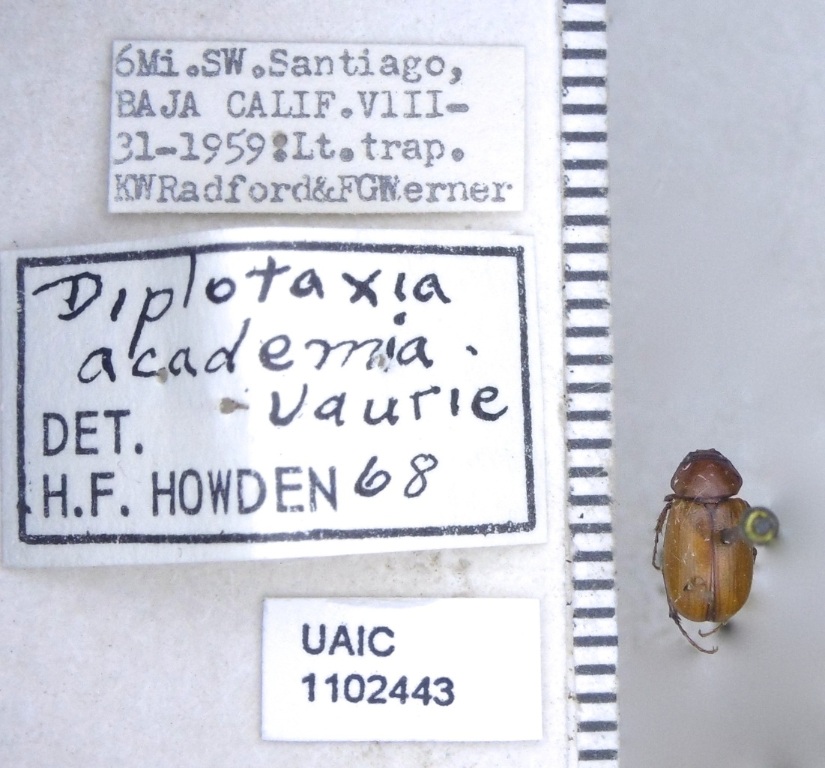 6Mi.SW.Santiago,
BAJA CALIF.VlII-
31-1959:Lt.trap.
KWRadford&FGWerner
Diplotaxia
academia.
Vaurie
DET.
H.F. HOWDEN 68
UAIC
1102443